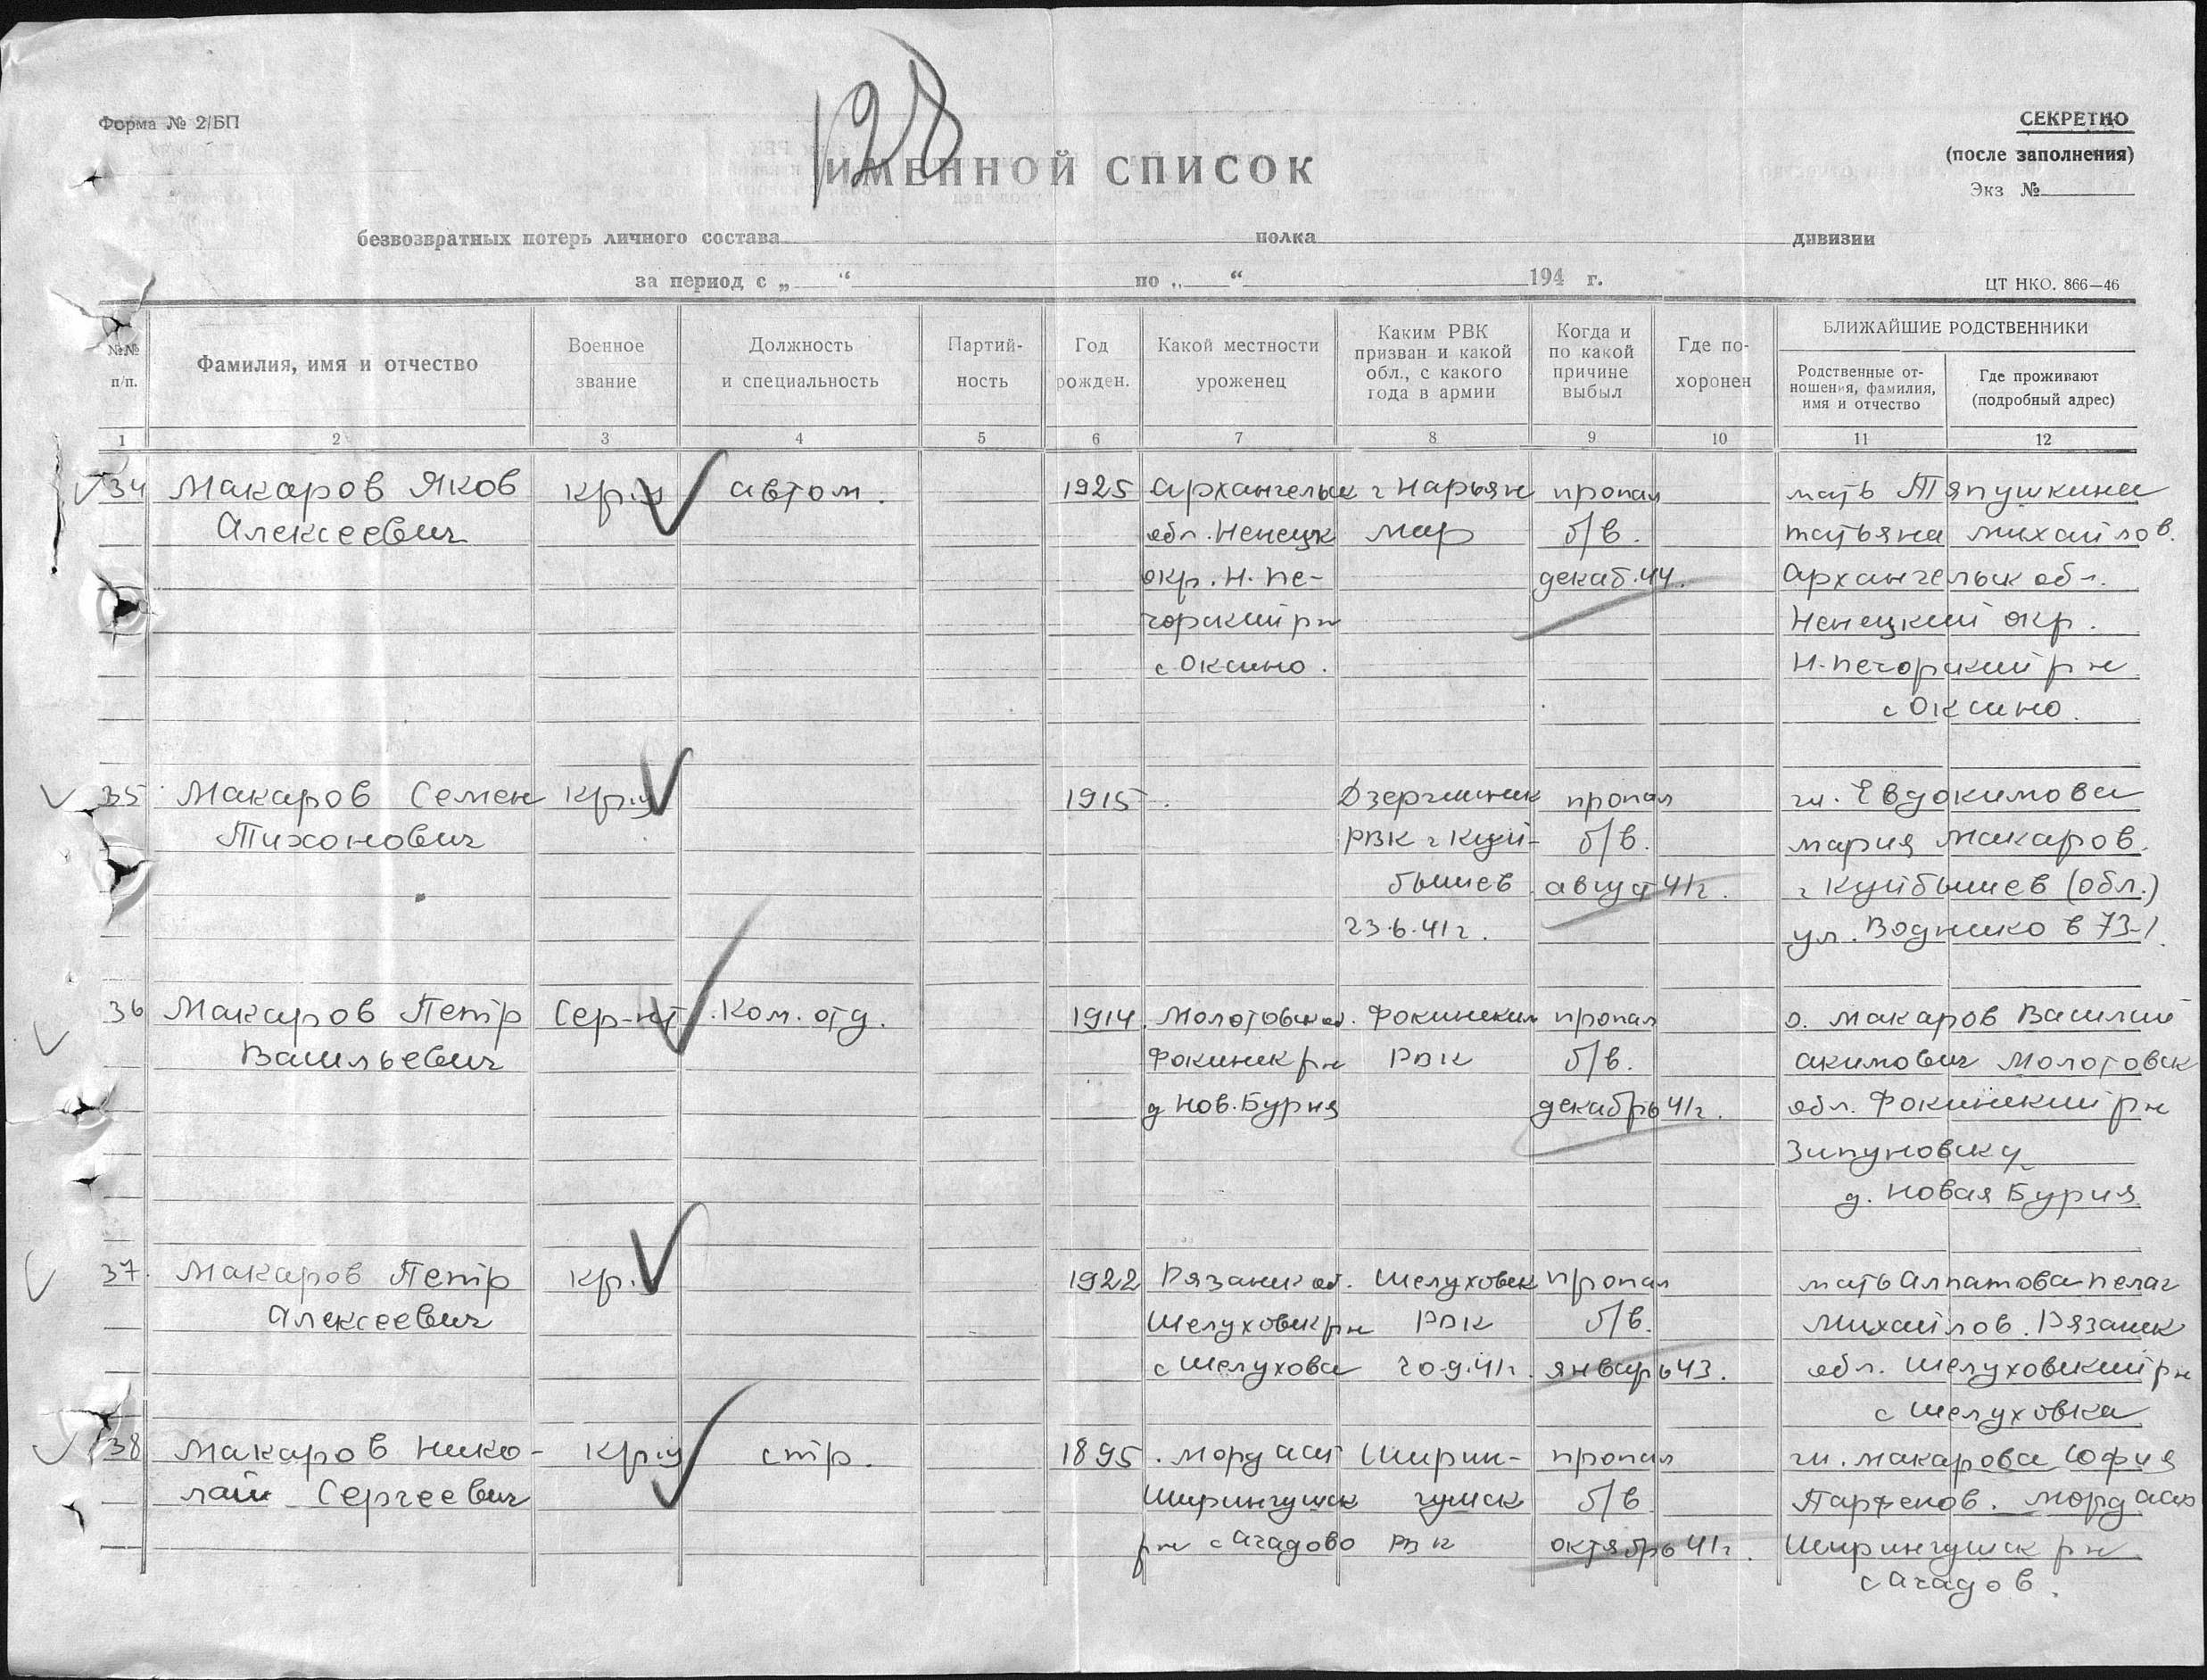 128
Форма № 2/БП
СЕКРЕТНО
(после заполнения)
Экз №
ИМЕННОЙ СПИСОК
безвозвратных потерь личного состава полка дивизии
за период с „ “ по „ “ 194 г.
ЦТ НКО. 866—46
№№ п/п.
Фамилия, имя и отчество
Военное звание
Должность и специальность
Партий-
ность
Год рожден.
Какой местности уроженец
Каким РВК
призван и какой
обл., с какого
года в армии
Когда и
по какой
причине
выбыл
Где по-
хоронен
БЛИЖАЙШИЕ РОДСТВЕННИКИ
Родственные от-
ношения, фамилия,
имя и отчество
Где проживают
(подробный адрес)
1 2 3 4 5 6 7 8 9 10 11 12
34 Макаров Яков кр-ц автом. 1925 Архангельск г Нарьян пропал мать Тяпушкина
Алексеевич обл. Ненецк мар б/в. Татьяна Михайлов.
окр. Н. Пе- декаб. 44. Архангельск обл.
чорский рн Ненецкий окр.
с Оксино. Н-Печорский рн
с Оксино.
35 Макаров Семен кр-ц 1915. Дзержинск пропал ж. Евдокимова
Тихонович РВК г Куй- б/в. Мария Макаров.
бышев август 41г. г Куйбышев (обл.)
23.6.41г. ул. Воднико в 73-1
36 Макаров Петр Сер-нт Ком. отд. 1914. Молотовск об. Фокинский пропал о. Макаров Василий
Васильевич Фокинск рн РВК б/в. Акимович Молотовск
д Нов. Бурня декабрь 41г. обл. Фокинский рн
Зипуновск
д. Новая Бурня
37. Макаров Петр кр. 1922 Рязанск об. Шелуховск пропал мать Алпатова Пелаг
Алексеевич Шелуховск рн РВК б/в. Михайлов. Рязанск
с Шелухова 20.9.41г. январь 43. обл. Шелуховский рн
с Шелуховка
38 Макаров Нико- кр-ц стр. 1895. Морд асст Ширин- пропал ж. Макарова София
лай Сергеевич Ширингушск гушск б/в Парфенов. Морд асср
рн с Агадово РВК октябрь 41г. Ширингушск рн
с Агадов.